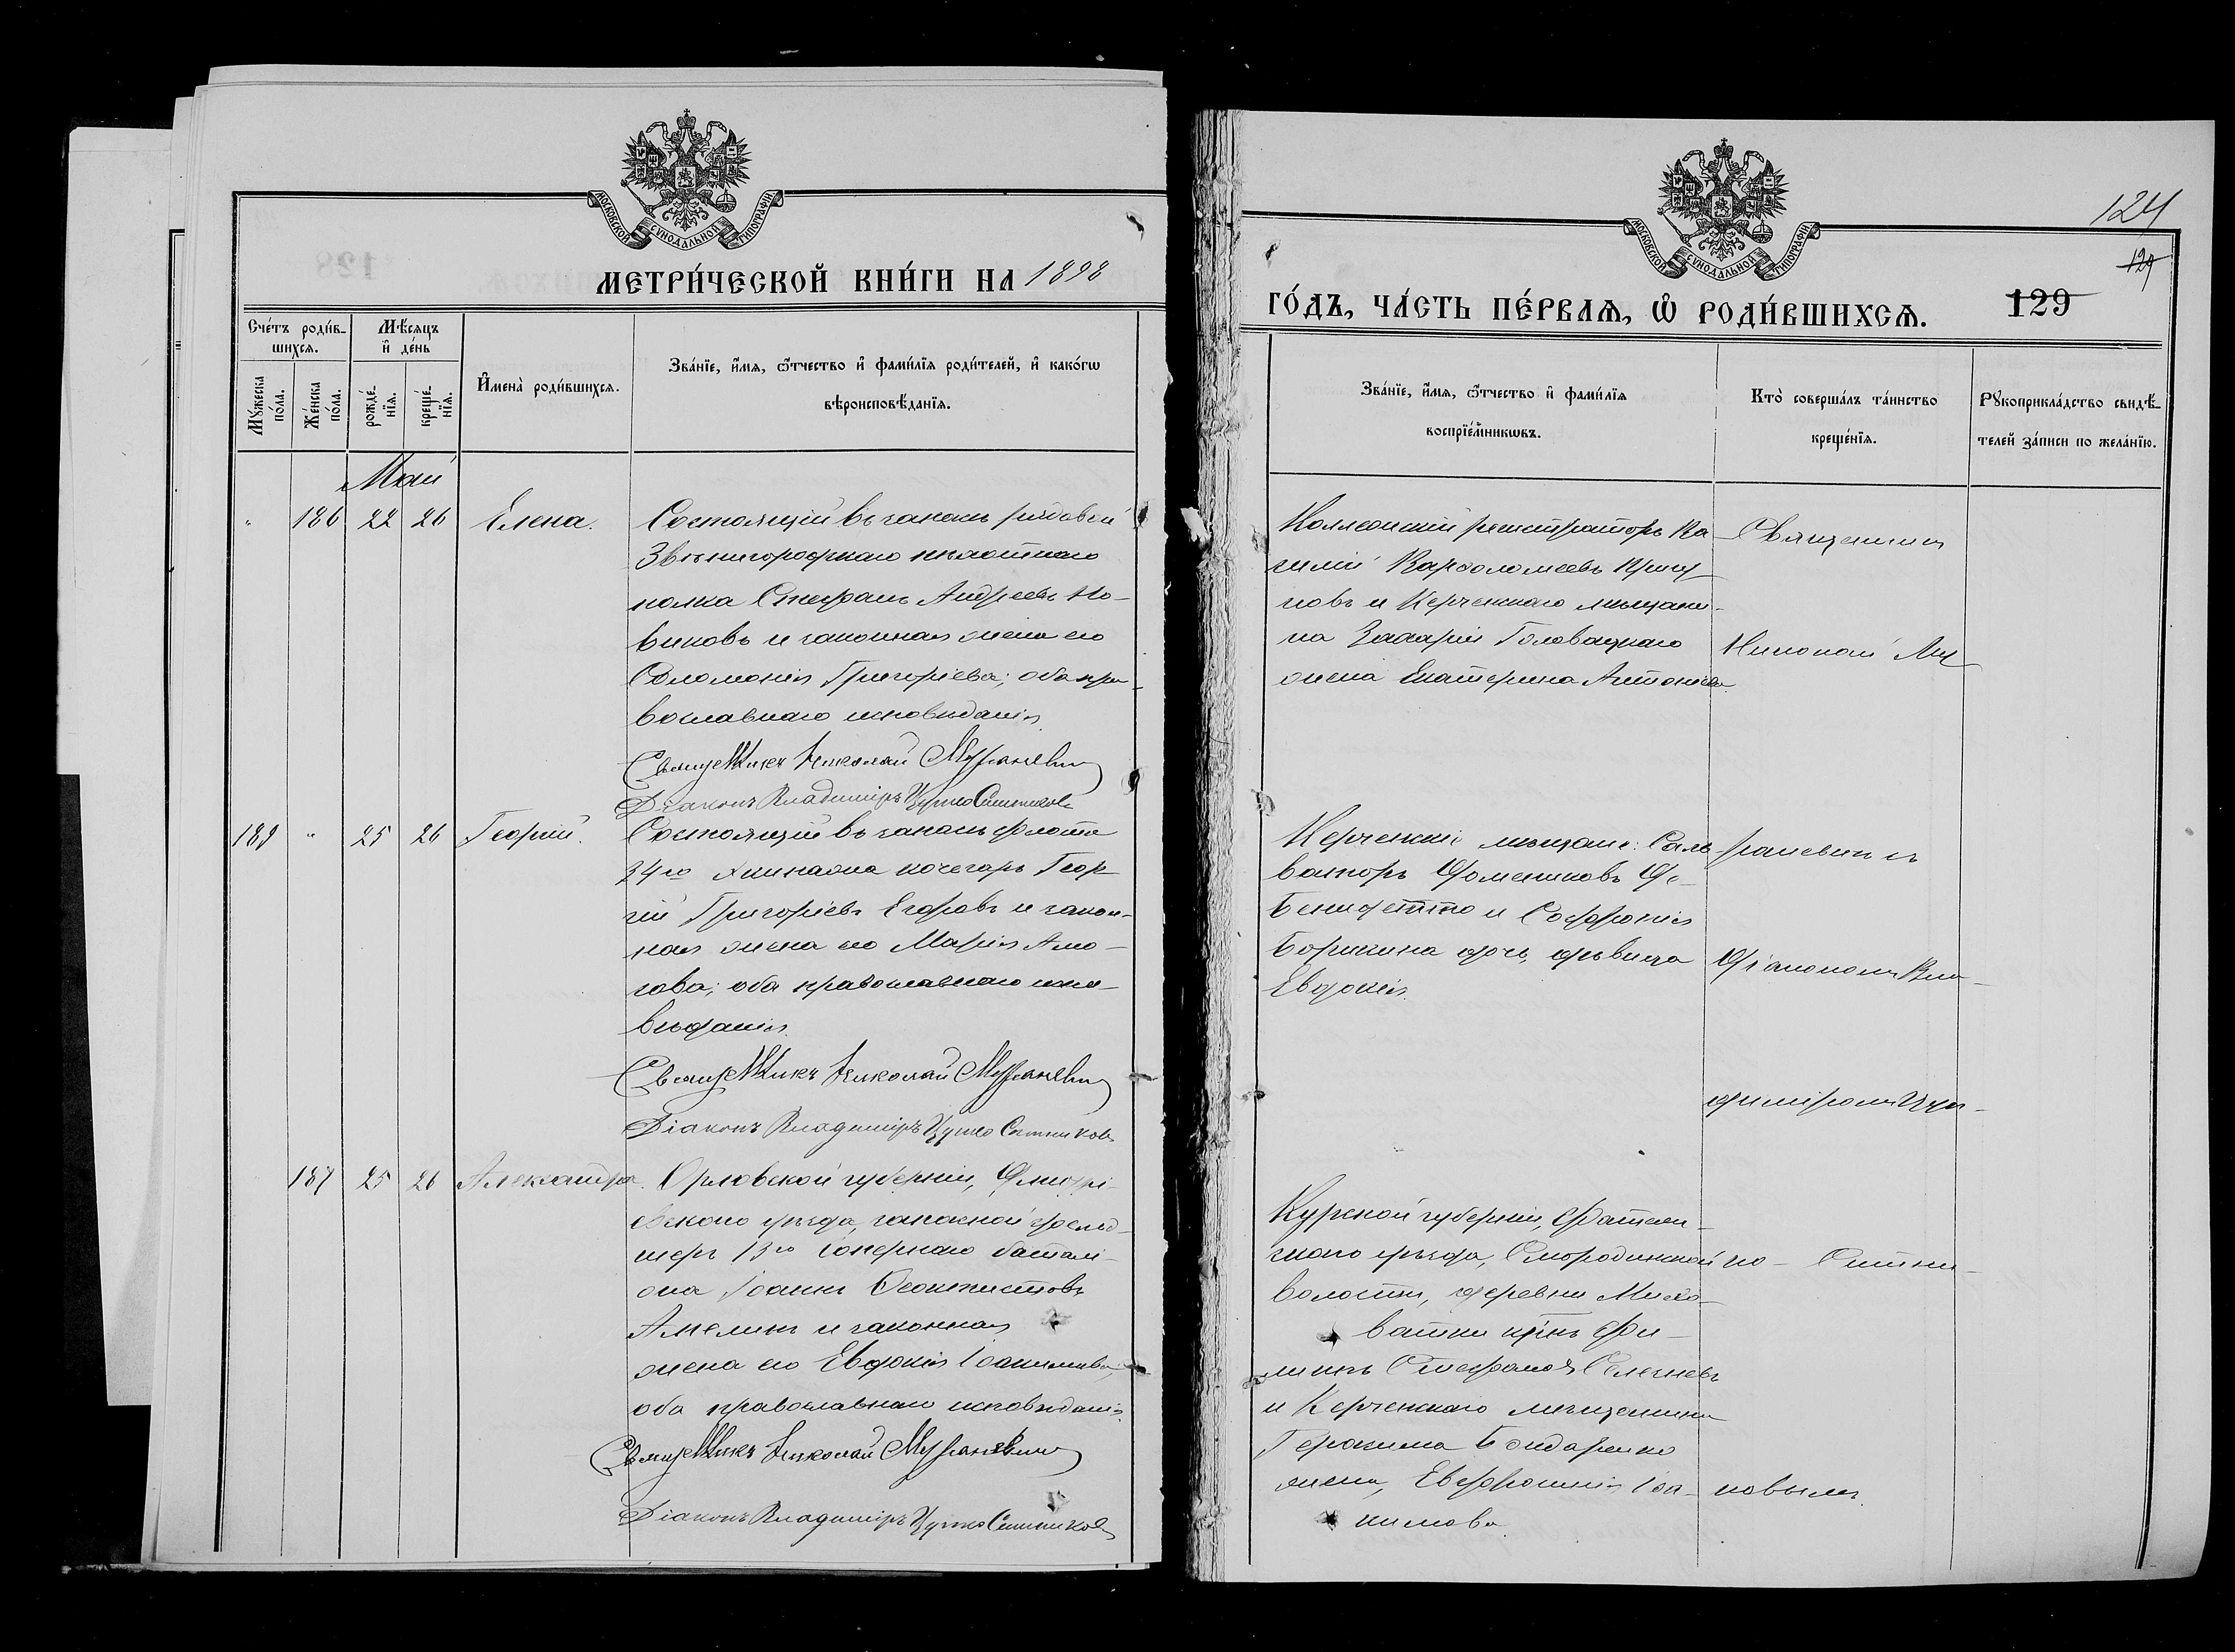 МОСКОВСКОЙ СѴНОДАЛЬНОЙ ТИПОГРАФІИ
МЕТРИ́ЧЕСКОЙ КНИ́ГИ НА 1898
Сче́тъ роди́в-
шихсѧ.
Мѣ́сѧцъ
и҆ де́нь
Мꙋ́жеска
по́ла.
Же́нска
по́ла.
рожде́-
нїѧ.
креще́-
нїѧ.
И҆мена̀ роди́вшихсѧ.
Зва́нїе, и҆́мѧ, ѻ҆́тчество и҆ фами́лїѧ роди́телей, и҆ како́гѡ
вѣроисповѣ́данїѧ.
Май
" 186 22 26 Елена.
Состоящій въ запасѣ рядовой
Звѣнигородкаго пѣхотнаго
полка Стефанъ Андреевъ Но-
виковъ и законная жена его
Соломонія Григоріева; оба пра-
вославнаго исповѣданія.
Священникъ Николай
Діаконъ Владиміръ
189 " 25 26 Георгій.
Состоящій въ запасѣ флота
34го Экипажа кочегаръ Геор-
гій Григоріевъ Егоровъ и закон-
ная жена его Марія Ама-
това; оба православнаго испо-
вѣданія.
Священникъ Николай
Діаконъ Владиміръ
187 25 26 Александра.
Орловской губерніи, Дмитрі-
евскаго уѣзда, запасной фельд-
шеръ 13го Сапернаго баталі-
она Іоаннъ Ѳеоктистовъ
Амелинъ и законная
жена его Евдокія Іоакимова,
оба православнаго исповѣданія.
Священникъ Николай
Діаконъ Владиміръ
МОСКОВСКОЙ СѴНОДАЛЬНОЙ ТИПОГРАФІИ
124
129
ГО́ДЪ, ЧА́СТЬ ПЕ́РВАѦ, Ѽ РОДИ́ВШИХСѦ.
Зва́нїе, и҆́мѧ, ѻ҆́тчество и҆ фами́лїѧ
воспрїе́мникѡвъ.
Кто̀ соверша́лъ та́инство
креще́нїѧ.
Рꙋкоприкла́дство свидѣ́-
телей за́писи по жела́нїю.
Коллежскій регистраторъ Ва-
силій Варѳоломеевъ
и Керченскаго мѣщани-
на Захарія Головацкаго
жена Екатерина Антоніева.
Священникъ
Николай
Керченскіе мѣщане: Саль-
ваторъ Доминиковъ Де-
Бенидетто и Софронія
Борисина дочь, дѣвица
Евдокія.
Діакономъ Вла-
диміромъ
Курской губерніи, Фатеж-
скаго уѣзда, Смородинской
волости, деревни
крнъ Фи-
липпъ Стефановъ Селезневъ
и Керченскаго мѣщанина
Герасима Бондаренко
жена, Евфросинія Іоа-
кимова.
новымъ.